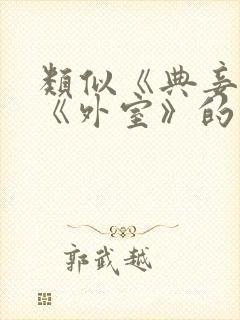 類似《典妾
《外室》的
郭武越